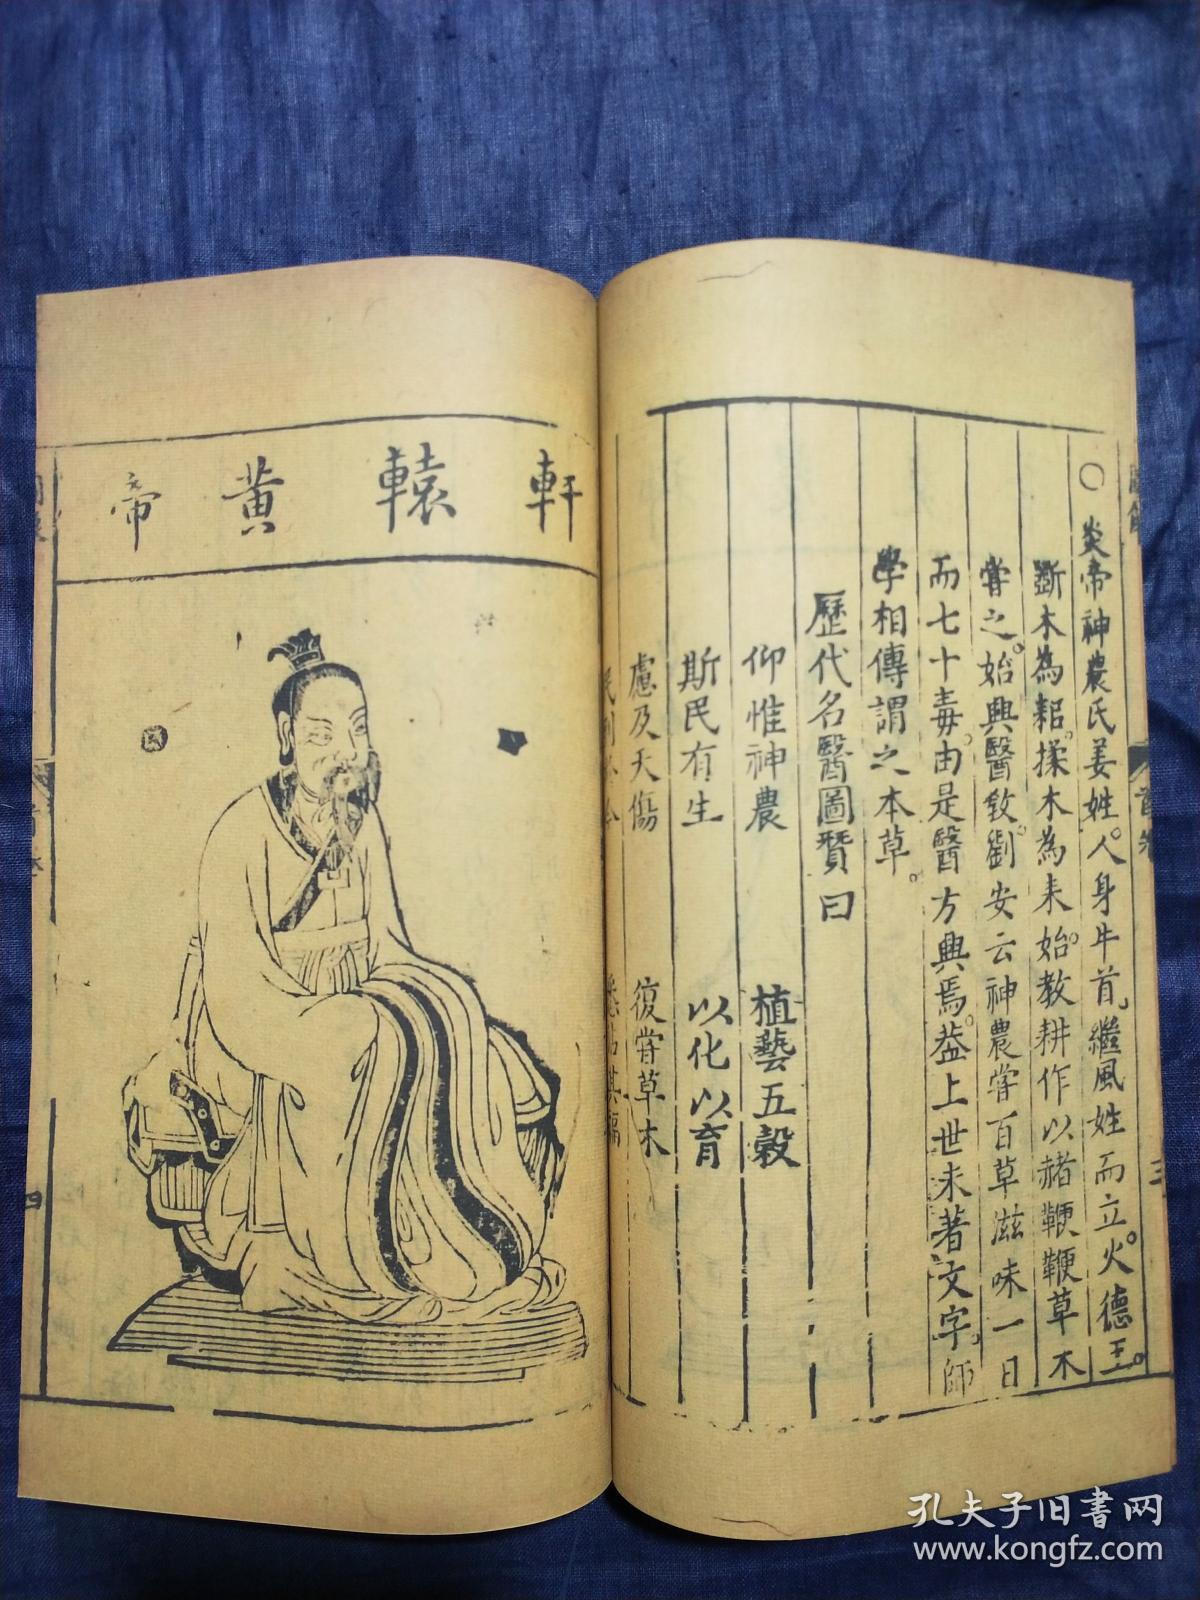 ○炎帝神農氏姜姓。人身牛首。繼風姓而立。火德王。
斲木為耜。揉木為耒。始教耕作以赭鞭鞭草木
嘗之。始興醫教。劉安云神農嘗百草滋味一日
而七十毒。由是醫方興焉。葢上世未著文字。師
學相傳謂之本草。
歷代名醫圖贊曰
仰惟神農 植藝五穀
斯民有生 以化以育
慮及夭傷 復嘗草木
軒轅黃帝
四
孔夫子旧书网
www.kongfz.com